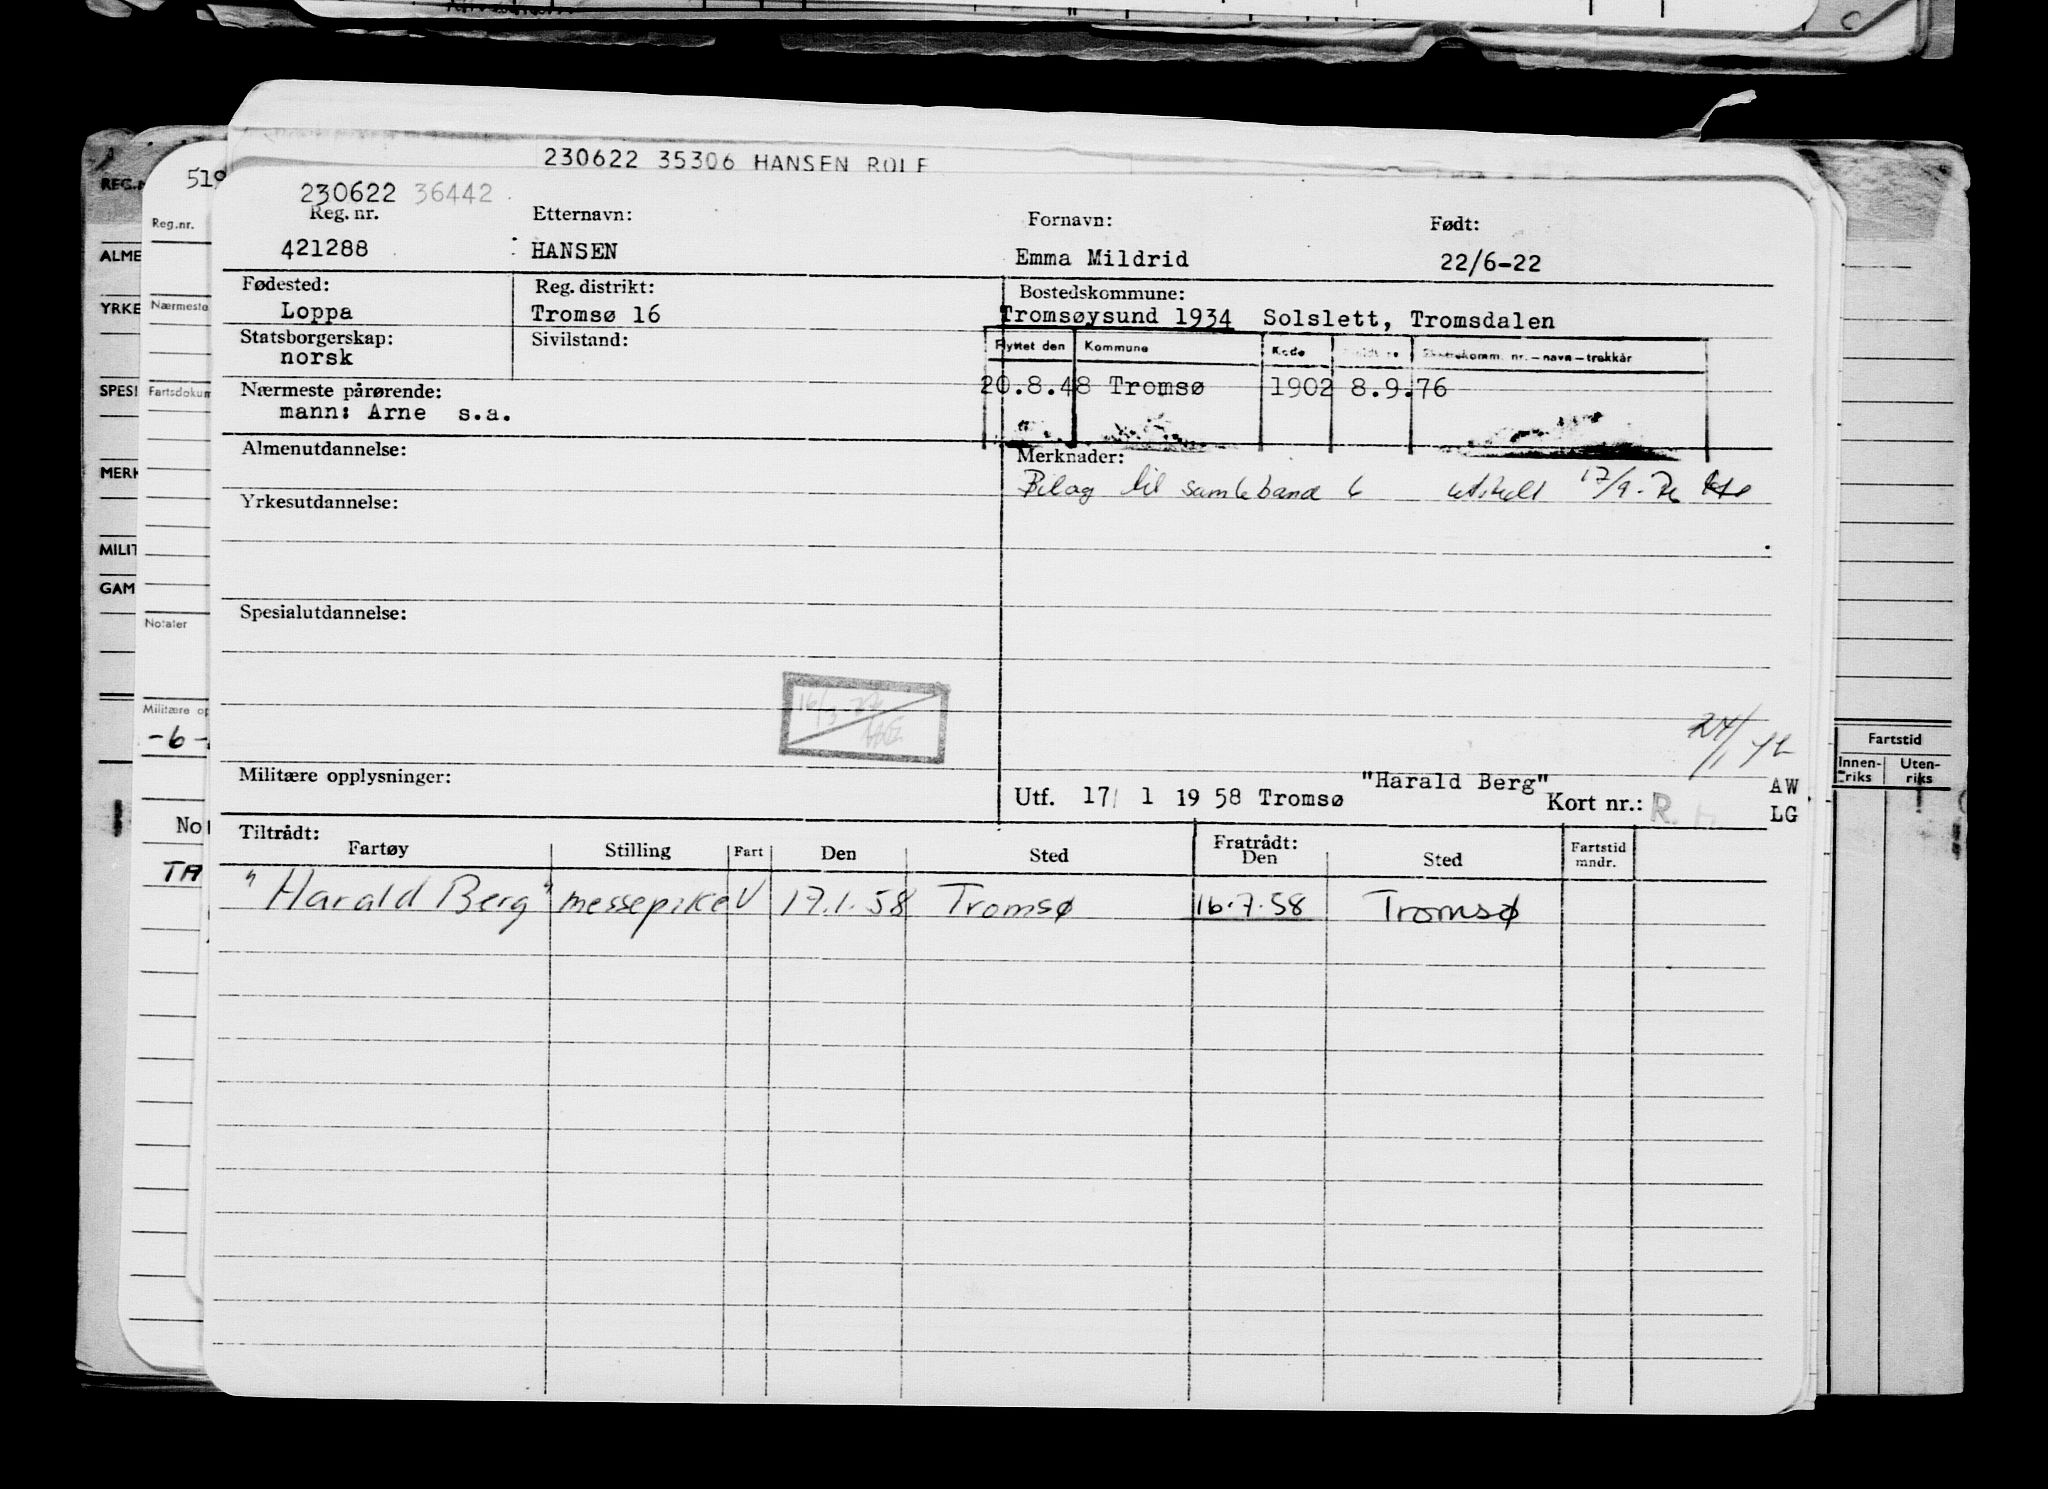 C
230622 35306 HANSEN ROLF
REG.N
519
230622 36442
Reg.nr.
Reg. nr. Etternavn: Fornavn: Født:
421288 HANSEN Emma Mildrid 22/6-22
ALME
Fødested: Reg. distrikt: Bostedskommune:
YRKE Nærmeste
Loppa Tromsø 16 Tromsøysund 1934 Solslett, Tromsdalen
Statsborgerskap: Sivilstand: Flyttet den Kommune Kode nr.—navn—trekkår
norsk
SPESI Fartsdokum
Nærmeste pårørende: 20.8.48 Tromsø 1902 8.9.76
mann: Arne s.a.
Almenutdannelse: Merknader:
MERK
Bilag til samlebånd 6 utskilt 17/9-76
Yrkesutdannelse:
MILIT
GAM
Spesialutdannelse:
Notater
16/3
Militære op
24/1
-6-
Fartstid
Innen-riks Uten-riks
Militære opplysninger: "Harald Berg" AW
Utf. 17/ 1 19 58 Tromsø Kort nr.: R. H LG
Nor
Tiltrådt: Fratrådt:
Fartøy Stilling Fart Den Sted Den Sted Fartstid mndr.
TA
"Harald Berg" messepike V 17.1.58 Tromsø 16.7.58 Tromsø